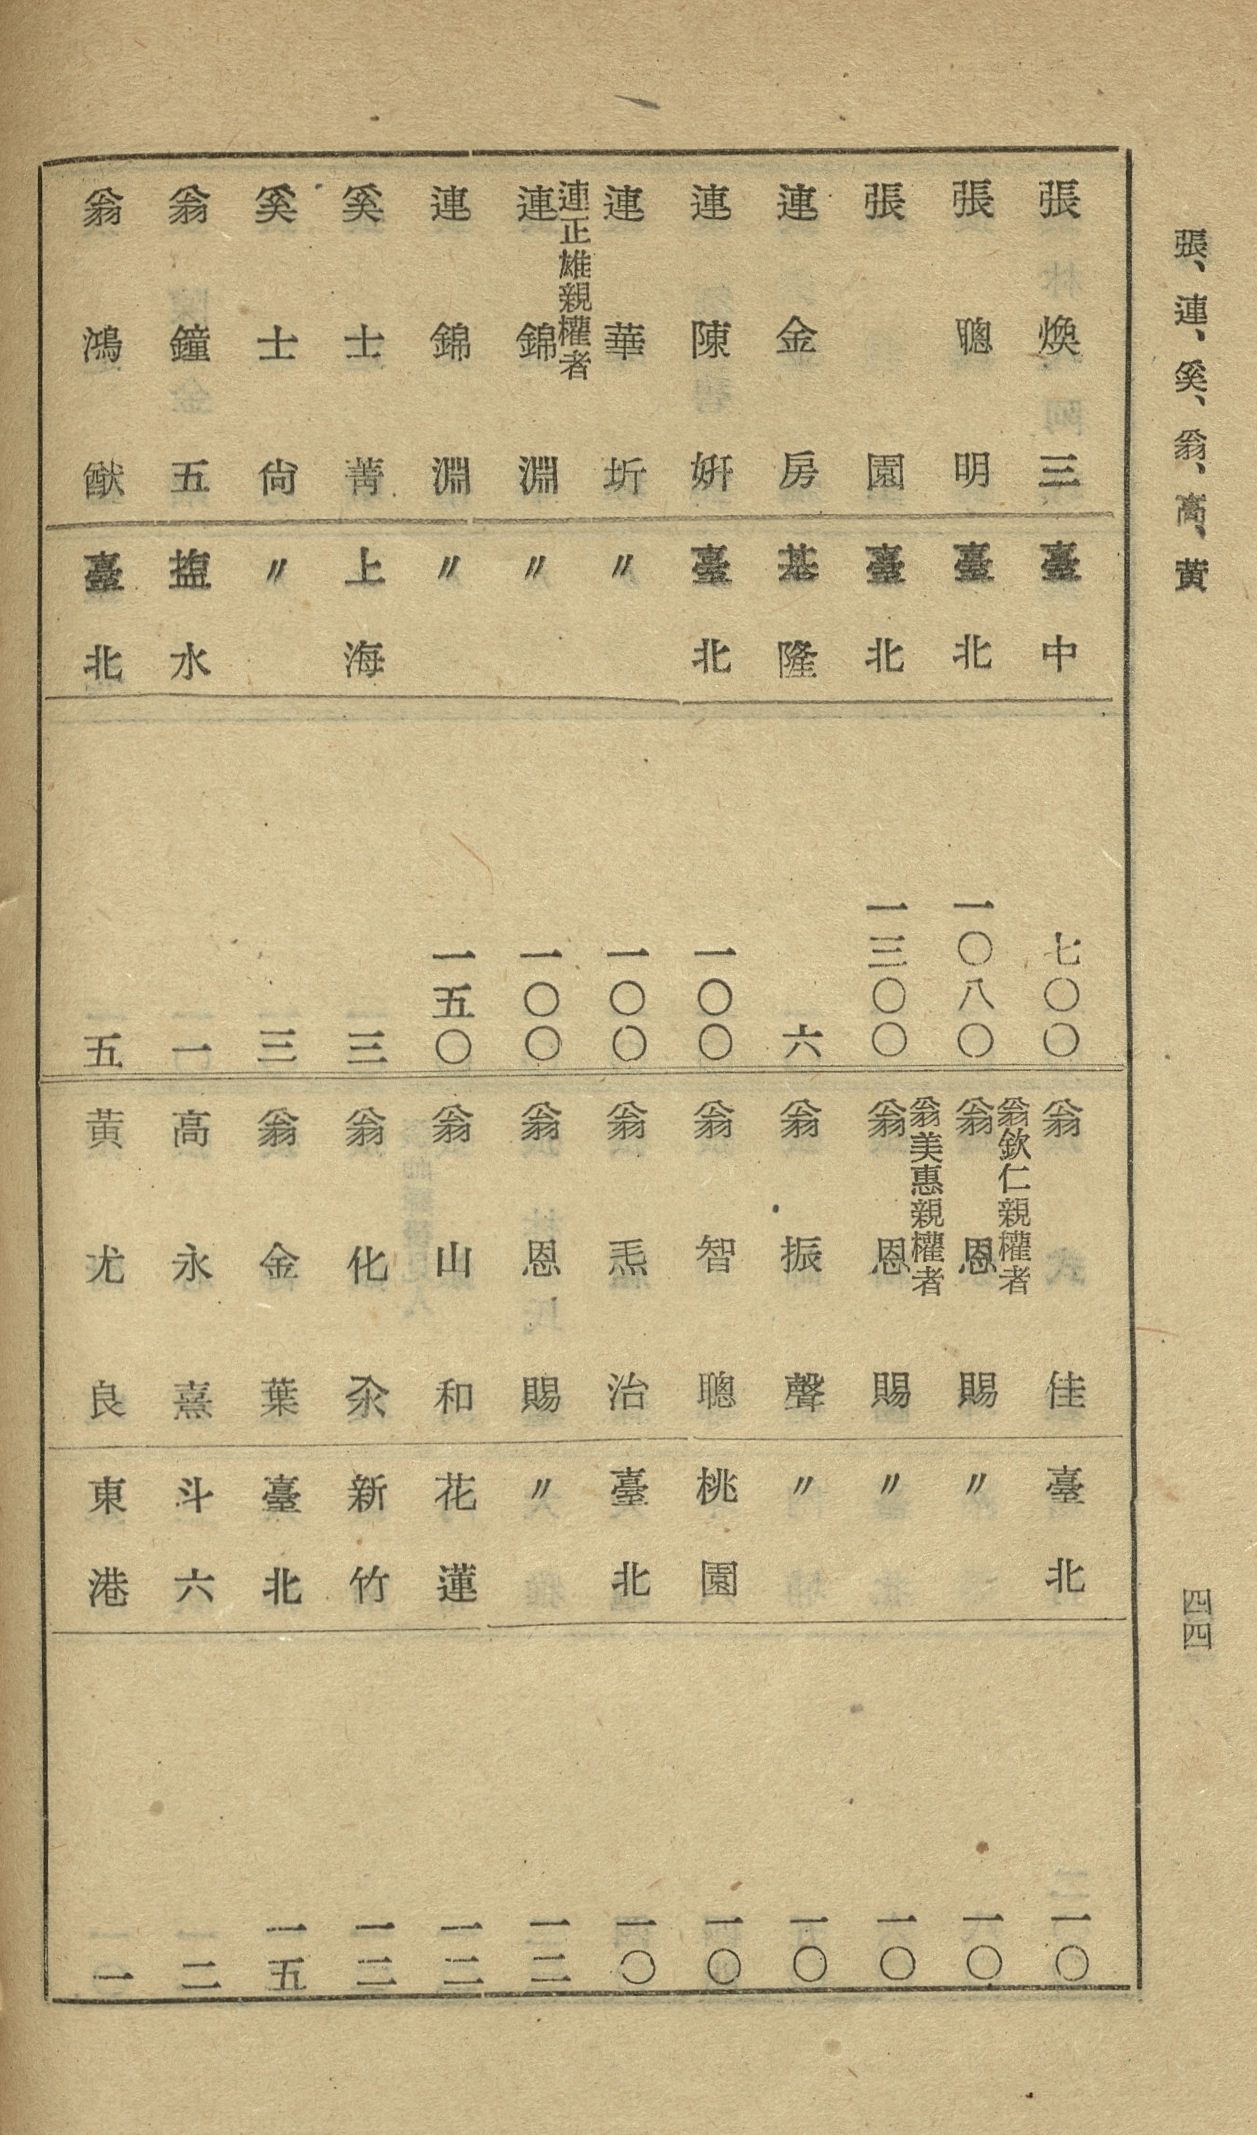 張、連、奚、翁、高、黃
四四
張煥三 臺中 七〇〇
張聰明 臺北 一〇八〇
張園 臺北 一三〇〇
連金房 基隆 六
連陳妍 臺北 一〇〇
連華圻 〃 一〇〇
連正雄親權者
連錦淵 〃 一〇〇
連錦淵 〃 一五〇
奚士菁 上海 三
奚士尙 〃 三
翁鐘五 塩水 一
翁鴻猷 臺北 五
翁佳 臺北 一〇
翁欽仁親權者
翁恩賜 〃 一〇
翁美惠親權者
翁恩賜 〃 一〇
翁振聲 〃 一〇
翁智聰 桃園 一〇
翁炁治 臺北 一〇
翁恩賜 〃 一二
翁山和 花蓮 一二
翁化 新竹 一二
翁金葉 臺北 一五
高永熹 斗六 二
黃尤良 東港 一